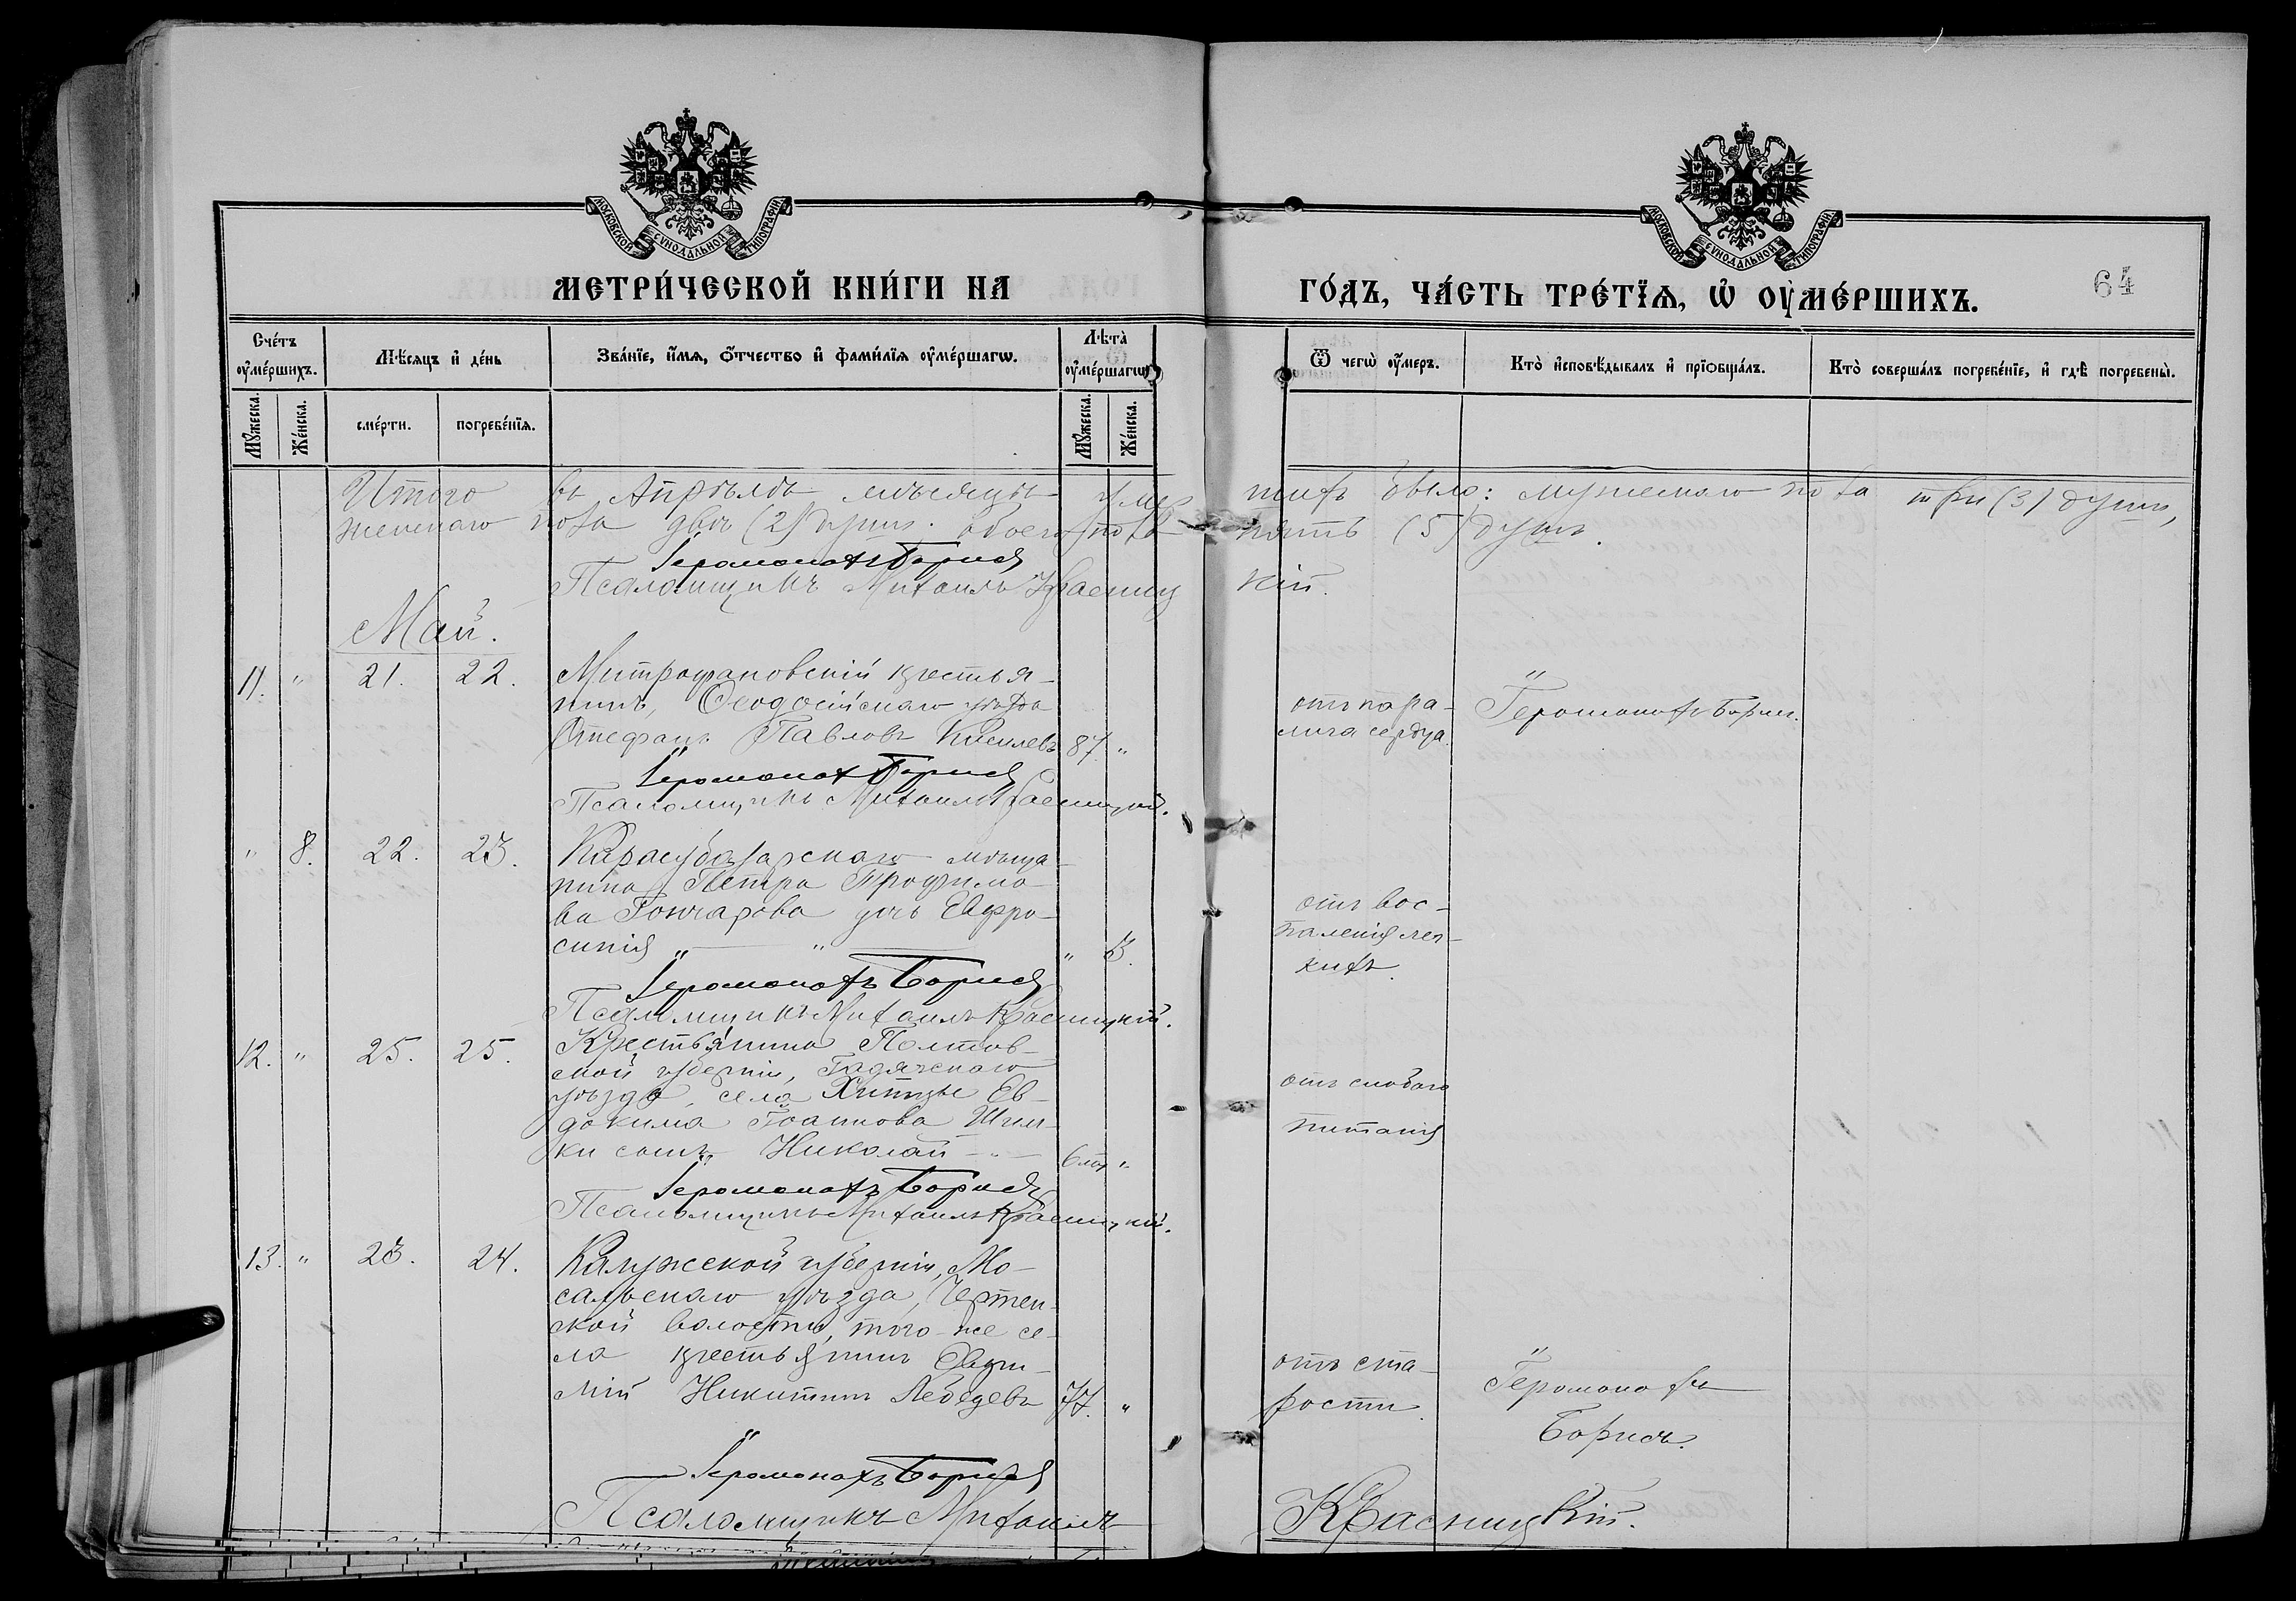 МОСКОВСКОЙ СѴНОДАЛЬНОЙ ТИПОГРАФІИ
МОСКОВСКОЙ СѴНОДАЛЬНОЙ ТИПОГРАФІИ
МЕТРИ́ЧЕСКОЙ КНИ́ГИ НА ГО́ДЪ, ЧА́СТЬ ТРЕ́ТЇѦ, Ѡ҆ ОУ҆МЕ́РШИХЪ.
64
Счетъ оумершихъ.
Мѣсяцъ и день
Званїе, имя, отчество и фамилїя оумершагѡ.
Лѣта оумершагѡ
Ѿ чегѡ оумеръ.
Кто исповѣдывалъ и прїобщалъ.
Кто совершалъ погребенїе, и гдѣ погребены.
Мужеска.
Женска.
смерти.
погребенїя.
Мужеска.
Женска.
Итого въ Апрѣлѣ мѣсяцѣ умерших было: мужескаго пола три (3) души,
женскаго пола двѣ (2) души. обоего пола пять (5) душъ.
Іеромонахъ Борисъ
Псаломщикъ Михаилъ Красницкій.
Май.
11. " 21. 22. Митрофановскій крестья-
нинъ, Ѳеодосійскаго уѣзда
Стефанъ Павловъ Киселевъ 87. "
отъ пара-
лича сердца.
Іеромонахъ Борисъ.
Іеромонахъ Борисъ
Псаломщикъ Михаилъ Красницкій.
" 8. 22. 23. Карасубазарскаго мѣща-
нина Петра Трофимо-
ва Гончарова дочь Евфро-
синія " " " 3.
отъ вос-
паленія лег-
кихъ.
Іеромонахъ Борисъ
Псаломщикъ Михаилъ Красницкій.
12. " 25. 25. Крестьянина Полтав-
ской губерніи, Гадячскаго
уѣзда, села Хитцы Ев-
докима Іоаннова
ки сынъ Николай "
отъ слабаго
питанія
Іеромонахъ Борисъ
Псаломщикъ Михаилъ Красницкій.
13. " 23. 24. Калужской губерніи, Мо-
сальскаго уѣзда, Чертен-
ской волости, того-же се-
ла крестьянинъ Евфи-
мій Никитинъ Лебедевъ 77. "
отъ ста-
рости.
Іеромонахъ
Борисъ.
Іеромонахъ Борисъ
Псаломщикъ Михаилъ Красницкій.